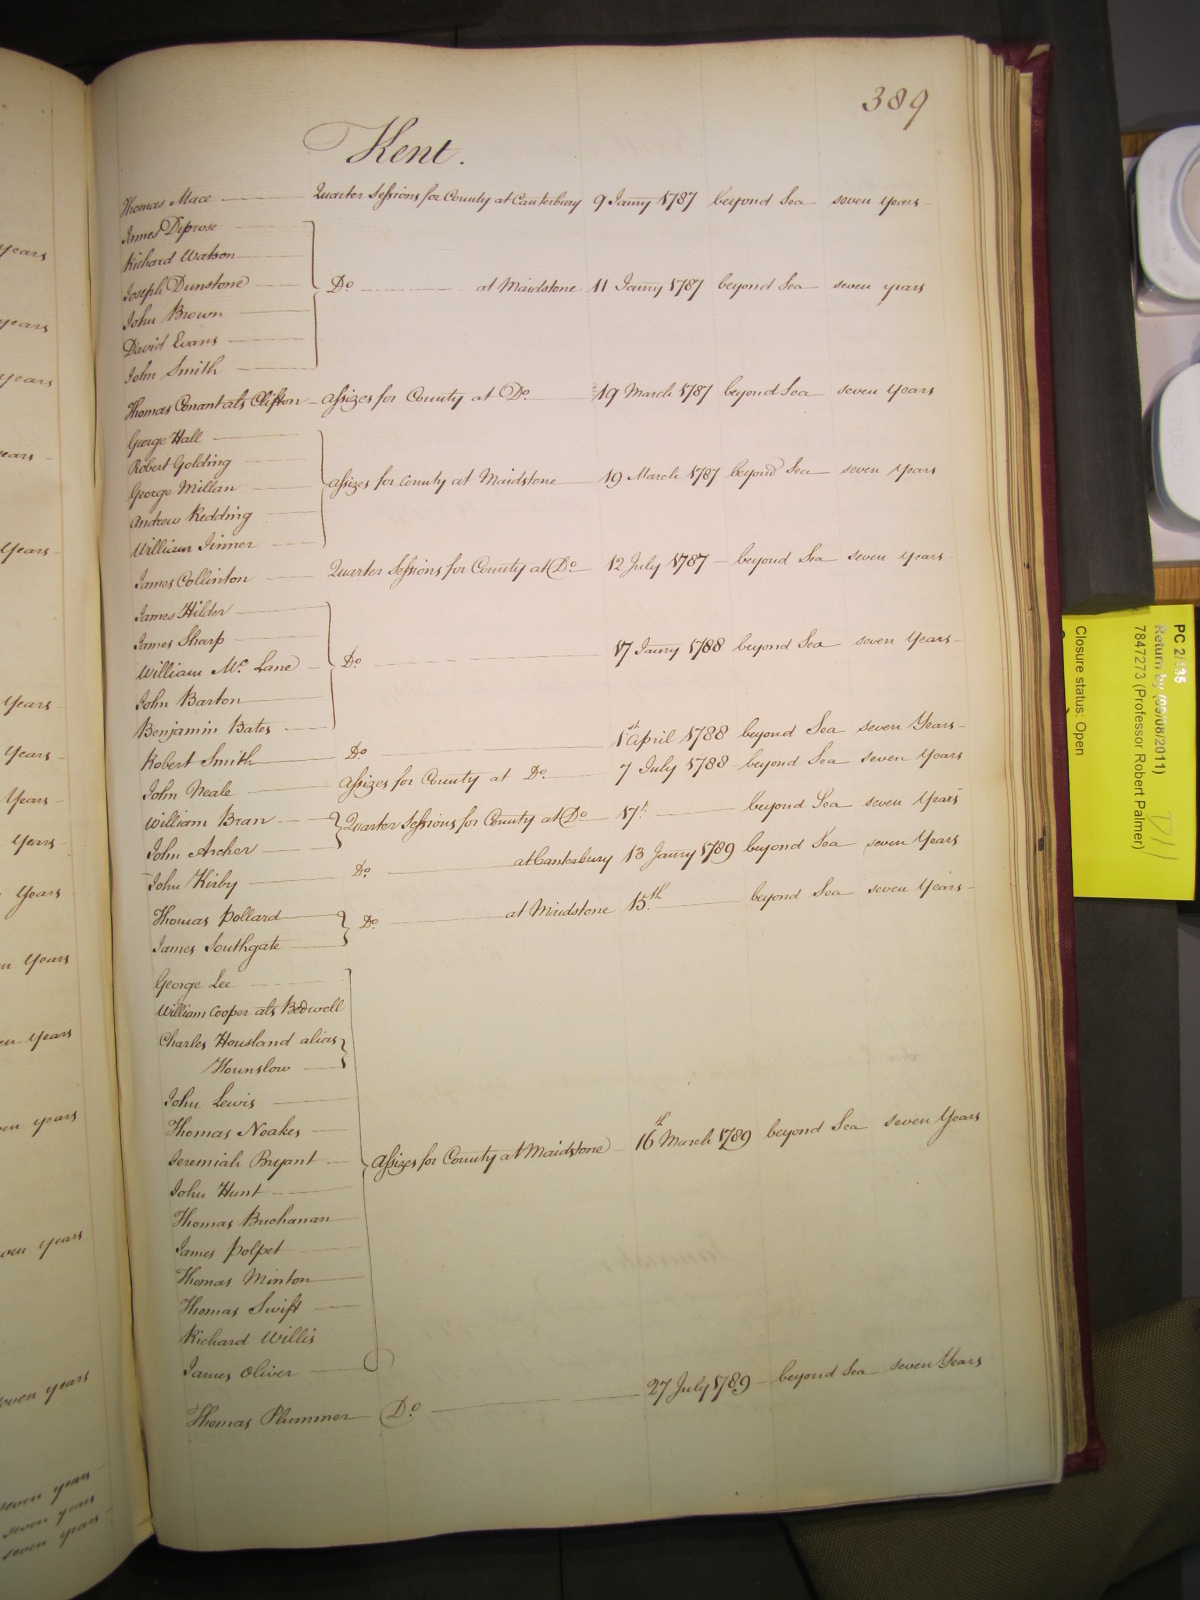 389
Kent.
Thomas Mace Quarter Sessions for County at Canterbury 9 Janry 1787 beyond Sea seven years
James Diprose
Richard Watson
Joseph Dunstone Do at Maidstone 11 Janry 1787 beyond Sea seven years
John Brown
David Evans
John Smith
Thomas Conant als Clifton Assizes for County at Do 19 March 1787 beyond Sea seven years
George Hall
Robert Golding
George Millan Assizes for County at Maidstone 19 March 1787 beyond Sea seven years
Andrew Kedding
William Jinner
James Collinton Quarter Sessions for County at Do 12 July 1787 beyond Sea seven years
James Hilder
James Sharp
William Mc Lane Do 17 Janry 1788 beyond Sea seven years
John Barton
Benjamin Bates
Robert Smith Do 1st April 1788 beyond Sea seven years
John Neale Assizes for County at Do 7 July 1788 beyond Sea seven years
William Bran Quarter Sessions for County at Do 17th beyond Sea seven years
John Archer
John Kirby Do at Canterbury 13 Janry 1789 beyond Sea seven years
Thomas Pollard Do at Maidstone 15th beyond Sea seven years
James Southgate
George Lee
William Cooper als Bedwell
Charles Housland alias
Hounslow
John Lewis
Thomas Noakes
Jeremiah Bryant Assizes for County at Maidstone 16th March 1789 beyond Sea seven years
John Hunt
Thomas Buchanan
James Polpet
Thomas Minton
Thomas Swift
Richard Willis
James Oliver
Thomas Plummer Do 27 July 1789 beyond Sea seven years
PC 2/135
Return by (09/08/2011)
7847273 (Professor Robert Palmer)
Closure status: Open
years
years
years
years
years
years
years
years
years
years
years
years
years
years
seven years
seven years
seven years
seven years